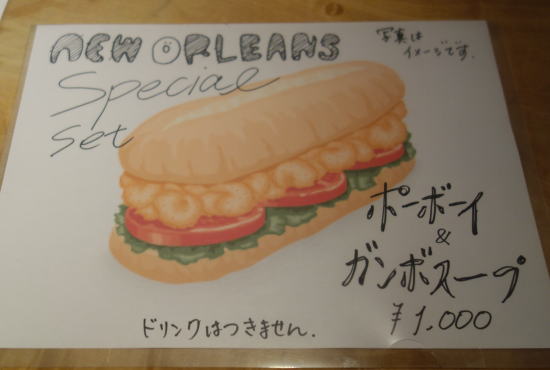 NEW ORLEANS
Special
Set
写真は
イメージです.
ポーボーイ
&
ガンボスープ
¥1,000
ドリンクはつきません.